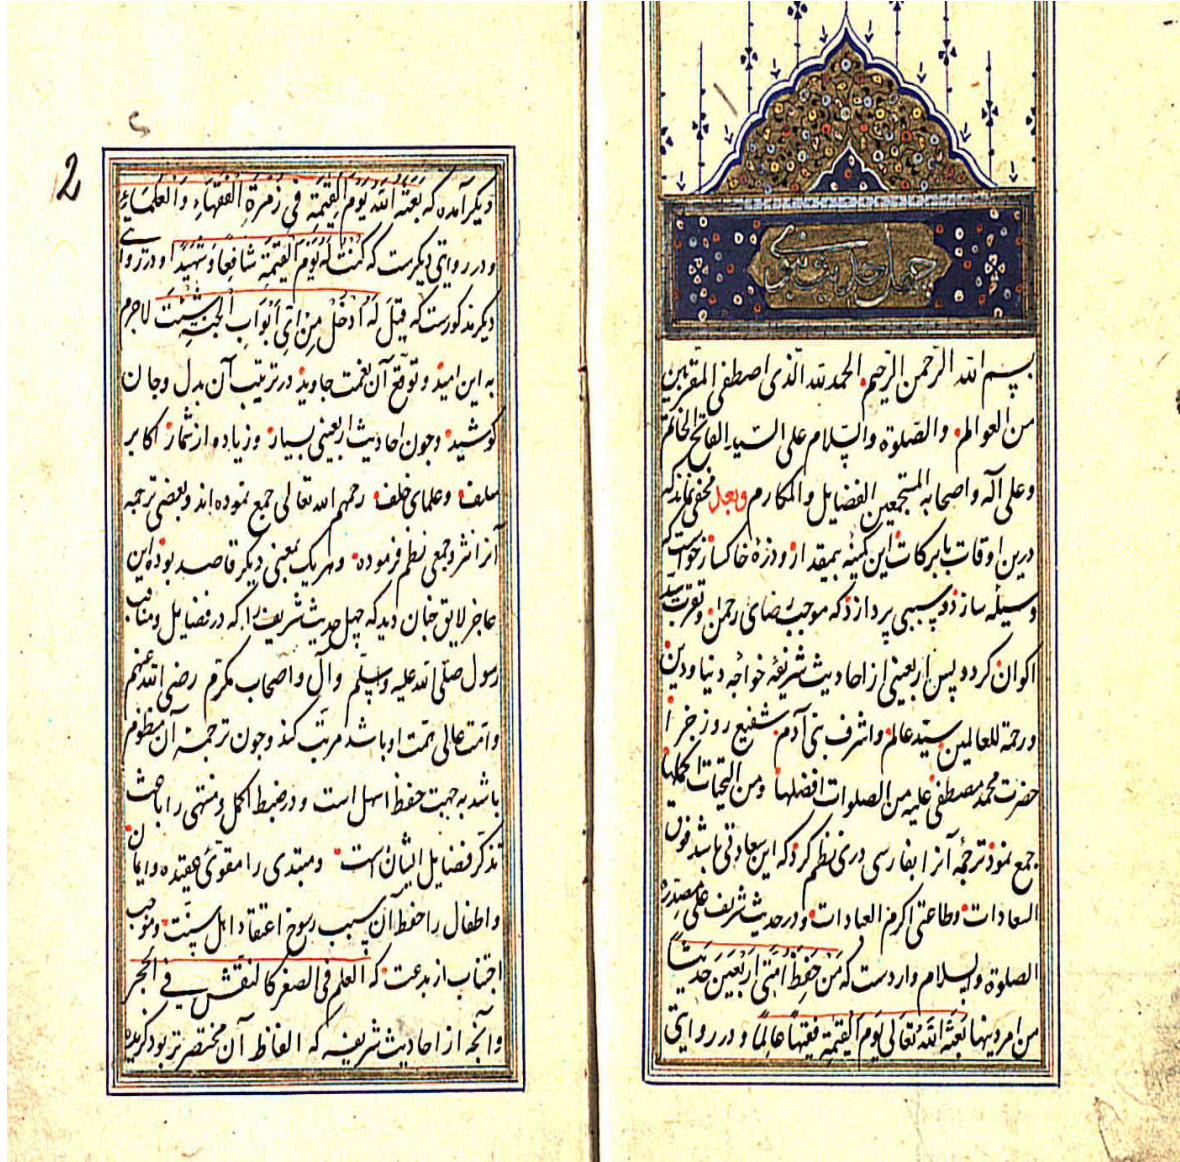 چهل حدیث نبوی
بسم الله الرّحمن الرّحیم الحمد لله الّذی اصطفی المقربین
من العوالم والصّلوة والسّلام علی السّید الفاتح الخاتم
وعلی آله واصحابه المستجمعین الفضایل والمکارم وبعد مخفی نماند که
درین اوقات بابرکات این کمینهٔ بیمقدار وذرهٔ خاکسار خواست که
وسیله سازد وسببی پردازد که موجب رضای رحمان وتقرب سید
اکوان کردد پس اربعینی از احادیث شریفهٔ خواجه دنیا ودین
ورحمة للعالمین سیّد عالم واشرف بنی آدم شفیع روز جزا
حضرت محمد مصطفی علیه من الصلوات افضلها ومن التحیات اکملها
جمع نمود ترجمهٔ آنرا بفارسی دری نظم کرد که این سعادتی باشد فوق
السعادات وطاعتی اکرم العبادات ودر حدیث شریف علی مصدره
الصلوة والسلام واردست که مَنْ حَفِظَ اُمَّتی اَرْبَعینَ حَدیثاً
من امر دینها بَعَثَهُ اللّهُ تَعَالی یَوْمَ القِیٰمَةِ فَقیهًا عَالِمًا ودر روایتی
2
دیکر آمده که بَعَثَهُ اللّهُ یَوْمَ القِیٰمَةِ فی زُمْرَةِ الفُقَهَاءِ وَالعُلَمَاءِ
ودر روایتی دیکرست که کُنْتُ لَهُ یَوْمَ القِیٰمَةِ شَافِعًا وَشَهیدًا ودر روایتی
دیکر مذکورست که قیلَ لَهُ اُدْخُلْ مِنْ اَیِّ اَبْوَابِ الجَنَّةِ شِئْتَ لاجرم
به این امید وتوقع آن نعمت جاوید در ترتیب آن بدل وجان
کوشید وچون احادیث اربعینی بسیار وزیاده از شمار اکابر
سلف وعلمای خلف رحمهم الله تعالی جمع نموده اند وبعضی ترجمه
آنرا نثر وجمعی نظم فرموده وهر یک بمعنی دیکر قاصد بوده این
عاجز لایق چنان دید که چهل حدیث شریف را که در فضایل ومناقب
رسول صلّی الله علیه وسلّم وآل واصحاب مکرّم رضی الله عنهم
وامّت عالی همت او باشد مرتب کند وچون ترجمهٔ آن منظوم
باشد به جهت حفظ اسهل است ودر ضبط اکمل ومنتهی را باعث
تذکر فضایل ایشان است ومبتدی را مقوّی عقیده وایمان
واطفال را حفظ آن سبب رسوخ اعتقاد اهل سنّت وموجب
اجتناب از بدعت که العلم فی الصغر کالنقش فی الحجر
وآنچه از احادیث شریفه که الفاظ آن مختصرتر بود کزیده